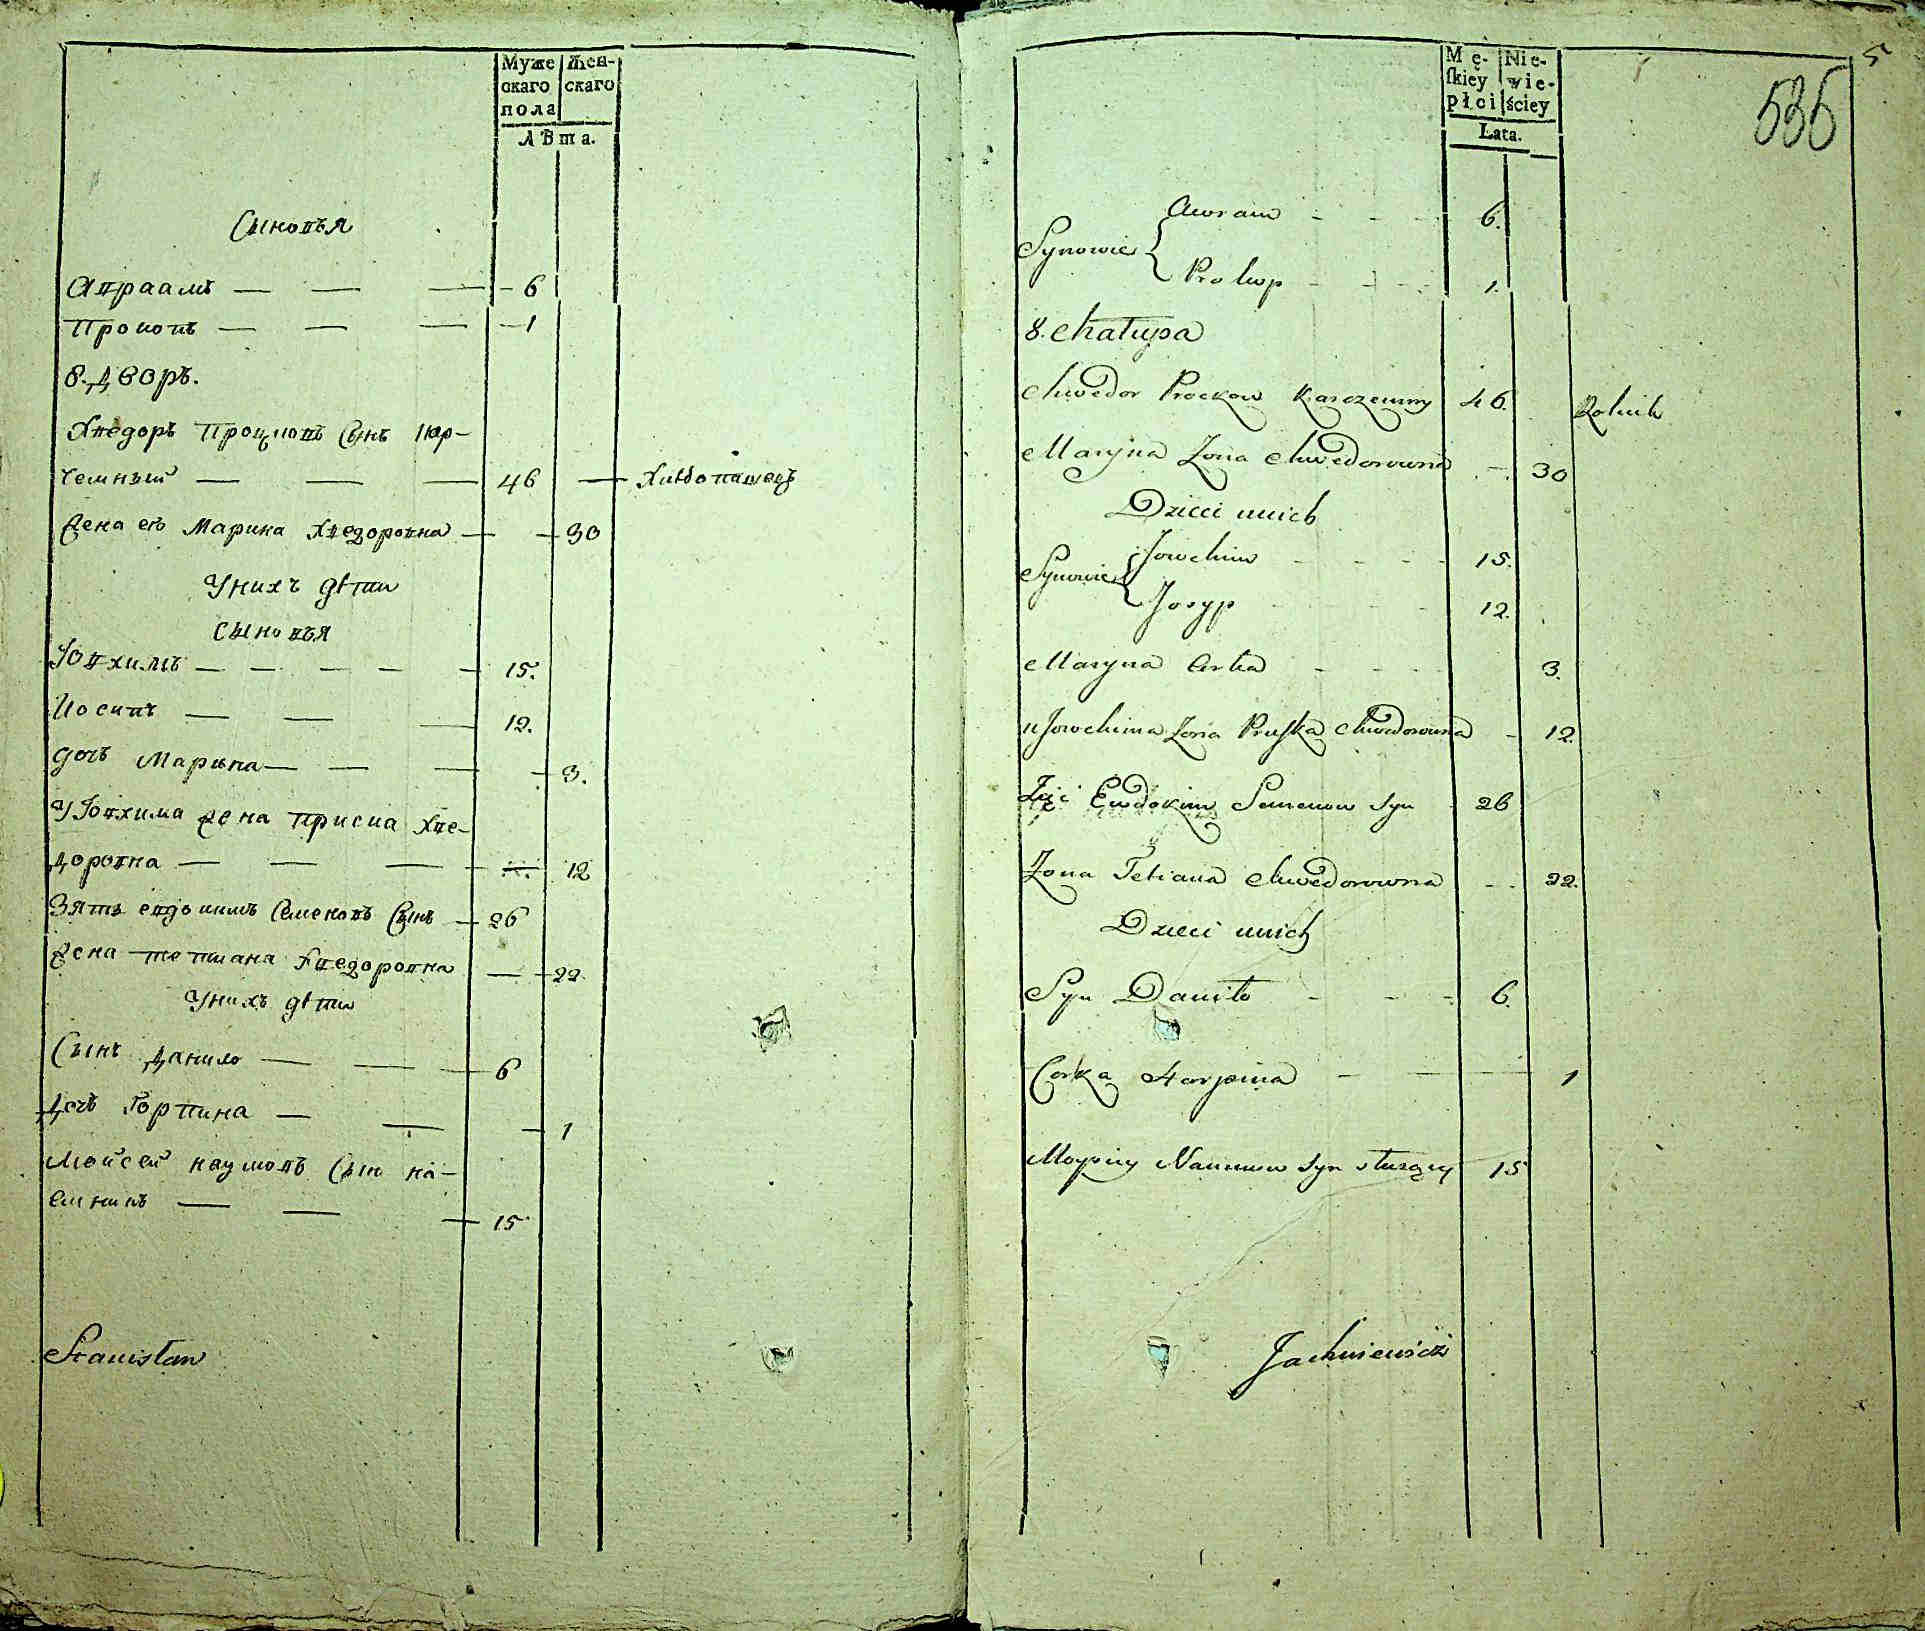 Муже
скаго
пола
Жен-
скаго
Лѣта.
Сыновья
Авраамъ — — — 6
Прокопъ — — — 1
8. Дворъ.
Хведоръ Процковъ Сынъ Кор-
чемный — — — 46 — Хлѣбопашецъ
Жена его Марина Хведоровна — 30
У нихъ дѣти
Сыновья
Іовхимъ — — — — 15.
Иосипъ — — — 12.
дочь Марина — — — 3.
У Іовхима женаПриска Хве-
доровна — — — 12
Зять евдокимъ Семеновъ Сынъ — 26
жена тетиана Хведоровна — 22.
У нихъ дѣти
Сынъ Данило — — — 6
Дочь Горпина — — — 1
Мойсей наумовъ Сын на-
емникъ — — — 15
Stanisław
Mę-
skiey
płci
Nie-
wie-
ściey
Lata.
5
535
Awram - - - 6.
Synowie
Prokop - - - 1.
8. Chałupa
Chwedor Prockow Karczemny 46. Rolnik
Maryna Żona Chwedorowna - 30
Dzieci unich
Jowchim - - - - 15.
Synowie
Josyp - - - 12.
Maryna Corka - - - 3.
u Jowchima Żona Pryska Chwedorowna - 12.
Zięć Ewdokim Semenow Syn 26
Żona Tetiana Chwedorowna - - 22.
Dzieci unich
Syn Daniło - - - 6.
Corka Horpina - - - 1
Moysiey Naumow Syn służący 15
Jachniewicz